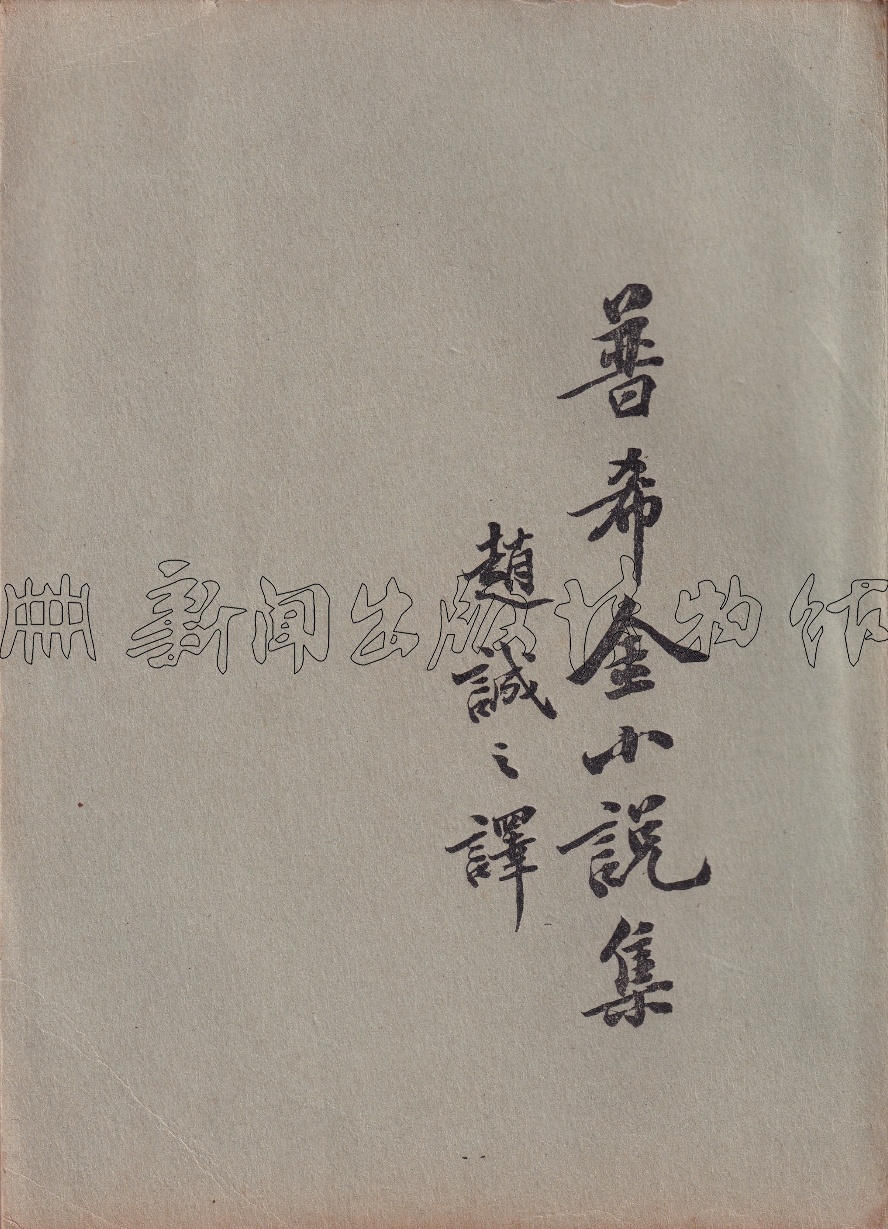 普希金小説集
趙誠之譯
新闻出版博物